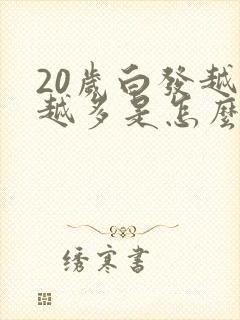 20歲白發越
越多是怎麼
绣寒書